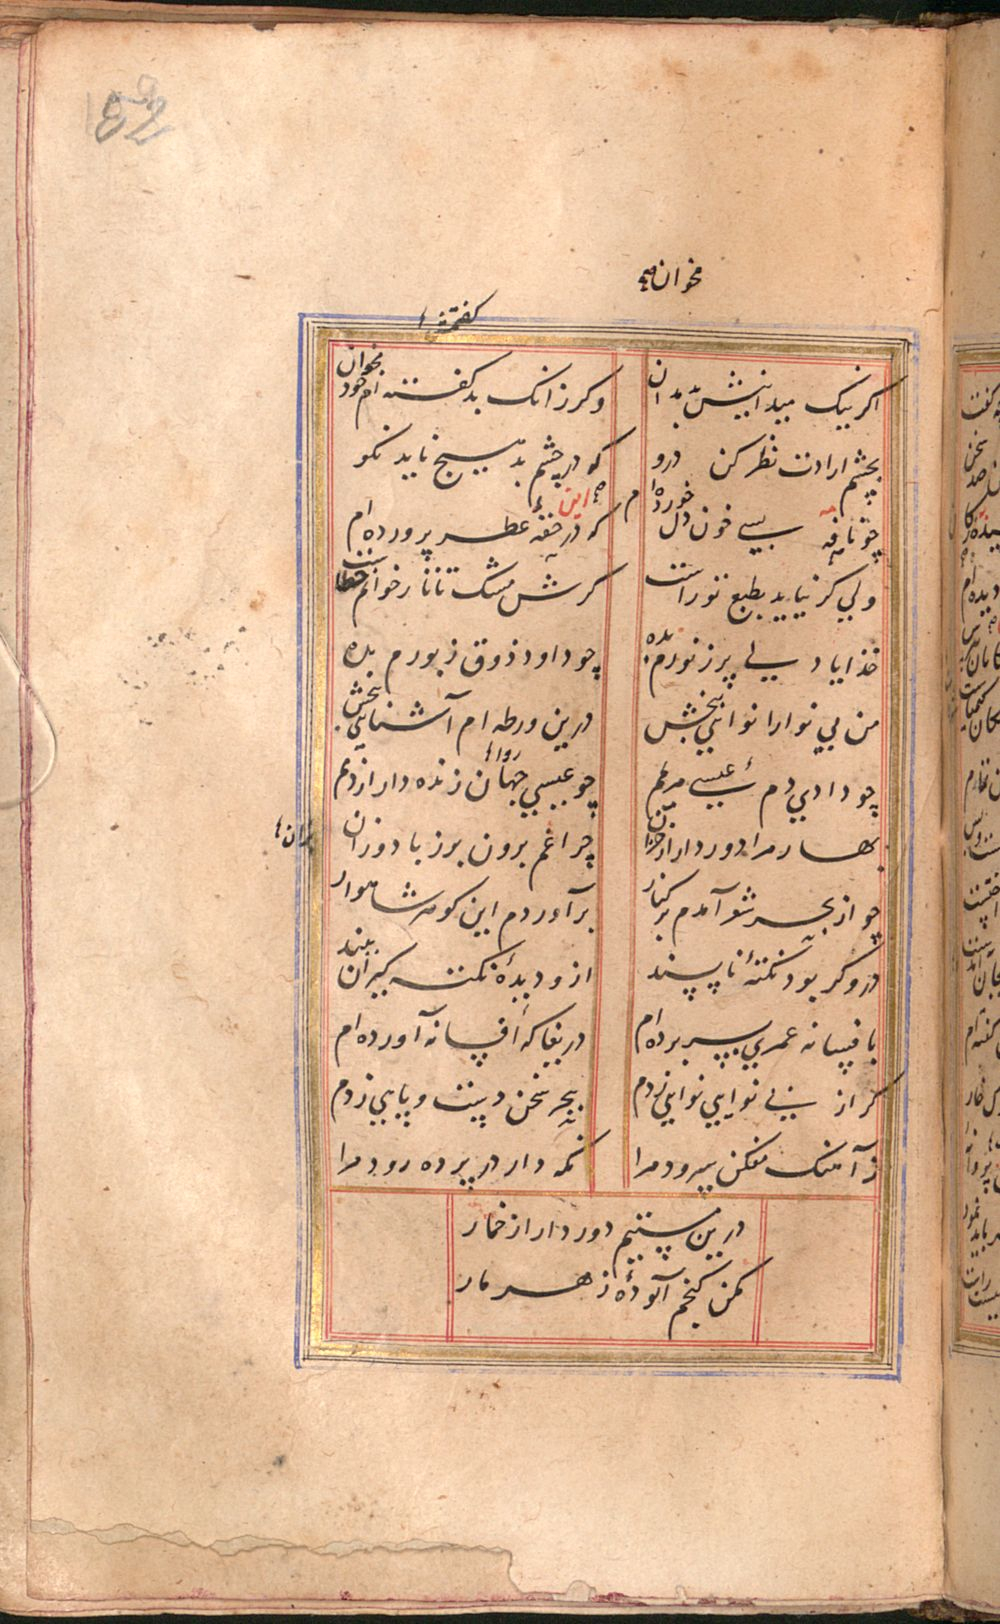 مخوان
گفته
اگر نیک میدانیش بد بدان
وگر زانک بد گفته ام خود مخوان
بچشم ارادت نظر کن درو
که در چشم بد هیچ ناید نکو
چو نافه بسی خون دل خورده ام
که در حقه عطر پرورده ام
این
ولی گر نیاید بطبع تو راست
گرش مشک تاتار خوانم خطاست
خدایا دلی پر ز نورم بده
چو داود ذوق زبورم بده
من بی نوا را نوایی ببخش
درین ورطه ام آشنایی ببخش
چو دادی دم عیسی مریمم
چو عیسی جهان زنده دار از دمم
روان
بهار مرا دور دار از خزان
چراغم برون بر ز باد وزان
چو از بحر شعر آمدم بر کنار
برآوردم این گوهر شاهوار
درو گر بود نکتهٔ ناپسند
ازو دیدهٔ نکته گیران ببند
بافسانه عمری بسر برده ام
دریغا که افسانه آورده ام
گر از بی نوایی نوایی زدم
ببحر سخن دست و پایی زدم
ز آهنگ مفکن سرود مرا
نگه دار در پرده رود مرا
درین مستیم دور دار از خمار
مکن گنجم آلودهٔ زهر مار